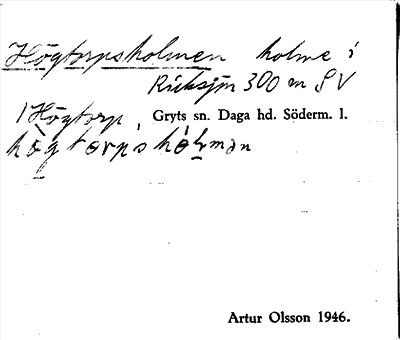 Högtorpsholmen holme i
Ricksjön 300 m SV
/ Högtorp, Gryts sn. Daga hd. Söderm. l.
hògtorpshól̠mən
Artur Olsson 1946.